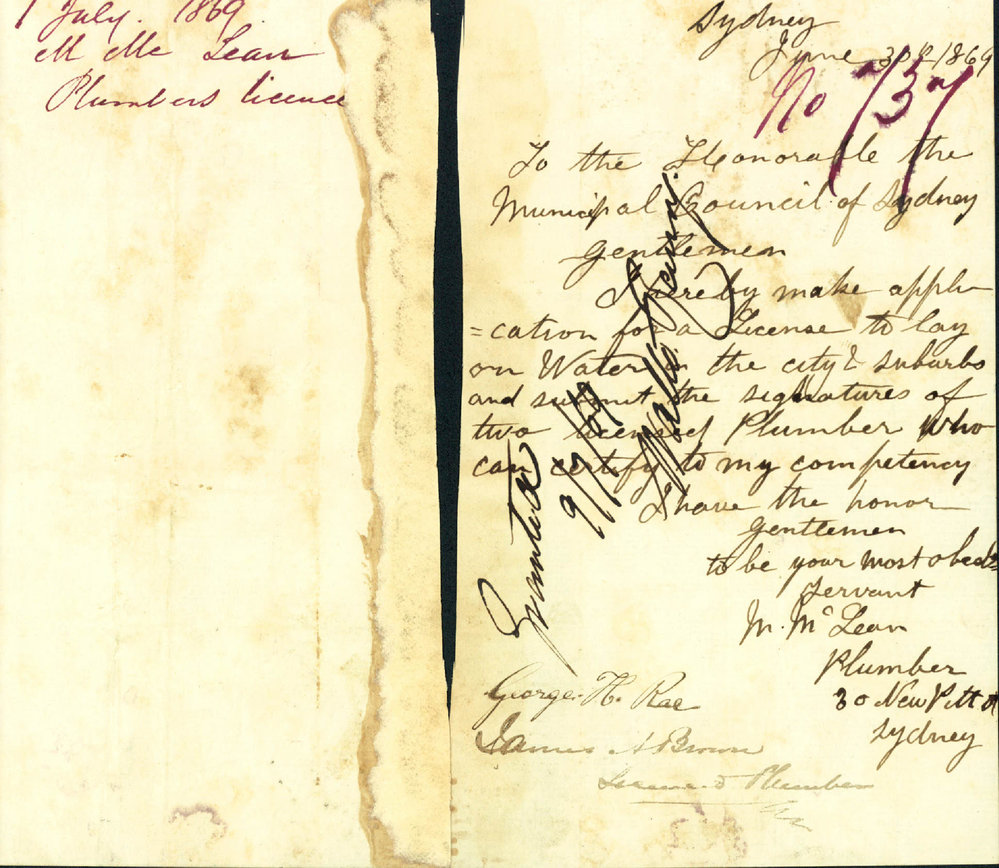 1 July. 1869
M Mc Lean
Plumbers licence
Sydney
June 30th 1869
No 737
To the Honorable the
Municipal Council of Sydney
Gentlemen
I hereby make appli
=cation for a License to lay
on Water in the city & suburbs
and submit the signatures of
two licensed Plumber who
can certify to my competency
I have the honor
Gentlemen
to be your most obedt
Servant
M. Mc Lean
Plumber
30 New Pitt st
Sydney
George H. Rae
James A Brown
Licensed Plumbers
Granted
9/7/69